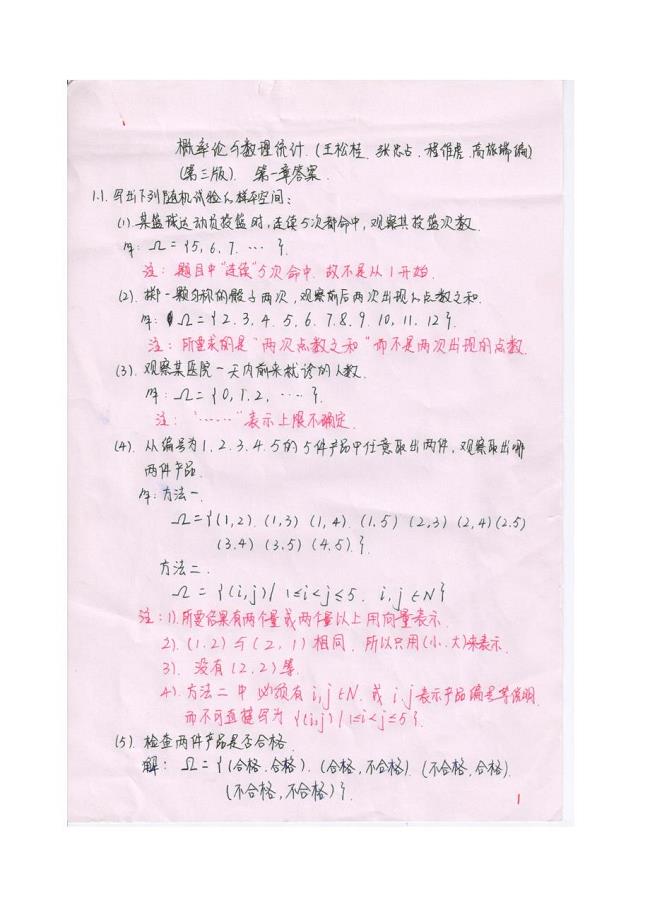 概率论与数理统计.(王松桂.张忠占.程维虎.高旅端编)
(第三版). 第一章答案.
1.1. 写出下列随机试验的样本空间:
(1).某篮球运动员投篮时,连续5次都命中,观察其投篮次数.
解: Ω={5,6,7. … }.
注: 题目中"连续"5次命中.故不是从1开始.
(2). 掷一颗匀称的骰子两次,观察前后两次出现的点数之和.
解: Ω={2.3.4.5.6.7.8.9.10,11.12}.
注: 所要求的是"两次点数之和"而不是两次出现的点数.
(3). 观察某医院一天内前来就诊的人数.
解: Ω={0,1.2, …… }.
注: "……"表示上限不确定.
(4). 从编号为1.2.3.4.5的5件产品中任意取出两件,观察取出哪
两件产品.
解: 方法一.
Ω={(1,2).(1,3) (1,4).(1.5) (2,3) (2,4)(2.5)
(3.4) (3.5) (4.5).}.
方法二.
Ω = {(i,j)| 1≤i<j≤5. i,j∈N}
注: 1).所要结果有两个量或两个量以上用向量表示.
2). (1.2)与(2,1)相同.所以只用(小.大)来表示.
3). 没有(2,2)等.
4). 方法二中必须有i,j∈N.或i.j表示产品编号等说明.
而不可直接写为{(i,j)|1≤i<j≤5}.
(5). 检查两件产品是否合格.
解: Ω={(合格.合格).(合格,不合格).(不合格,合格).
(不合格,不合格)}.
1